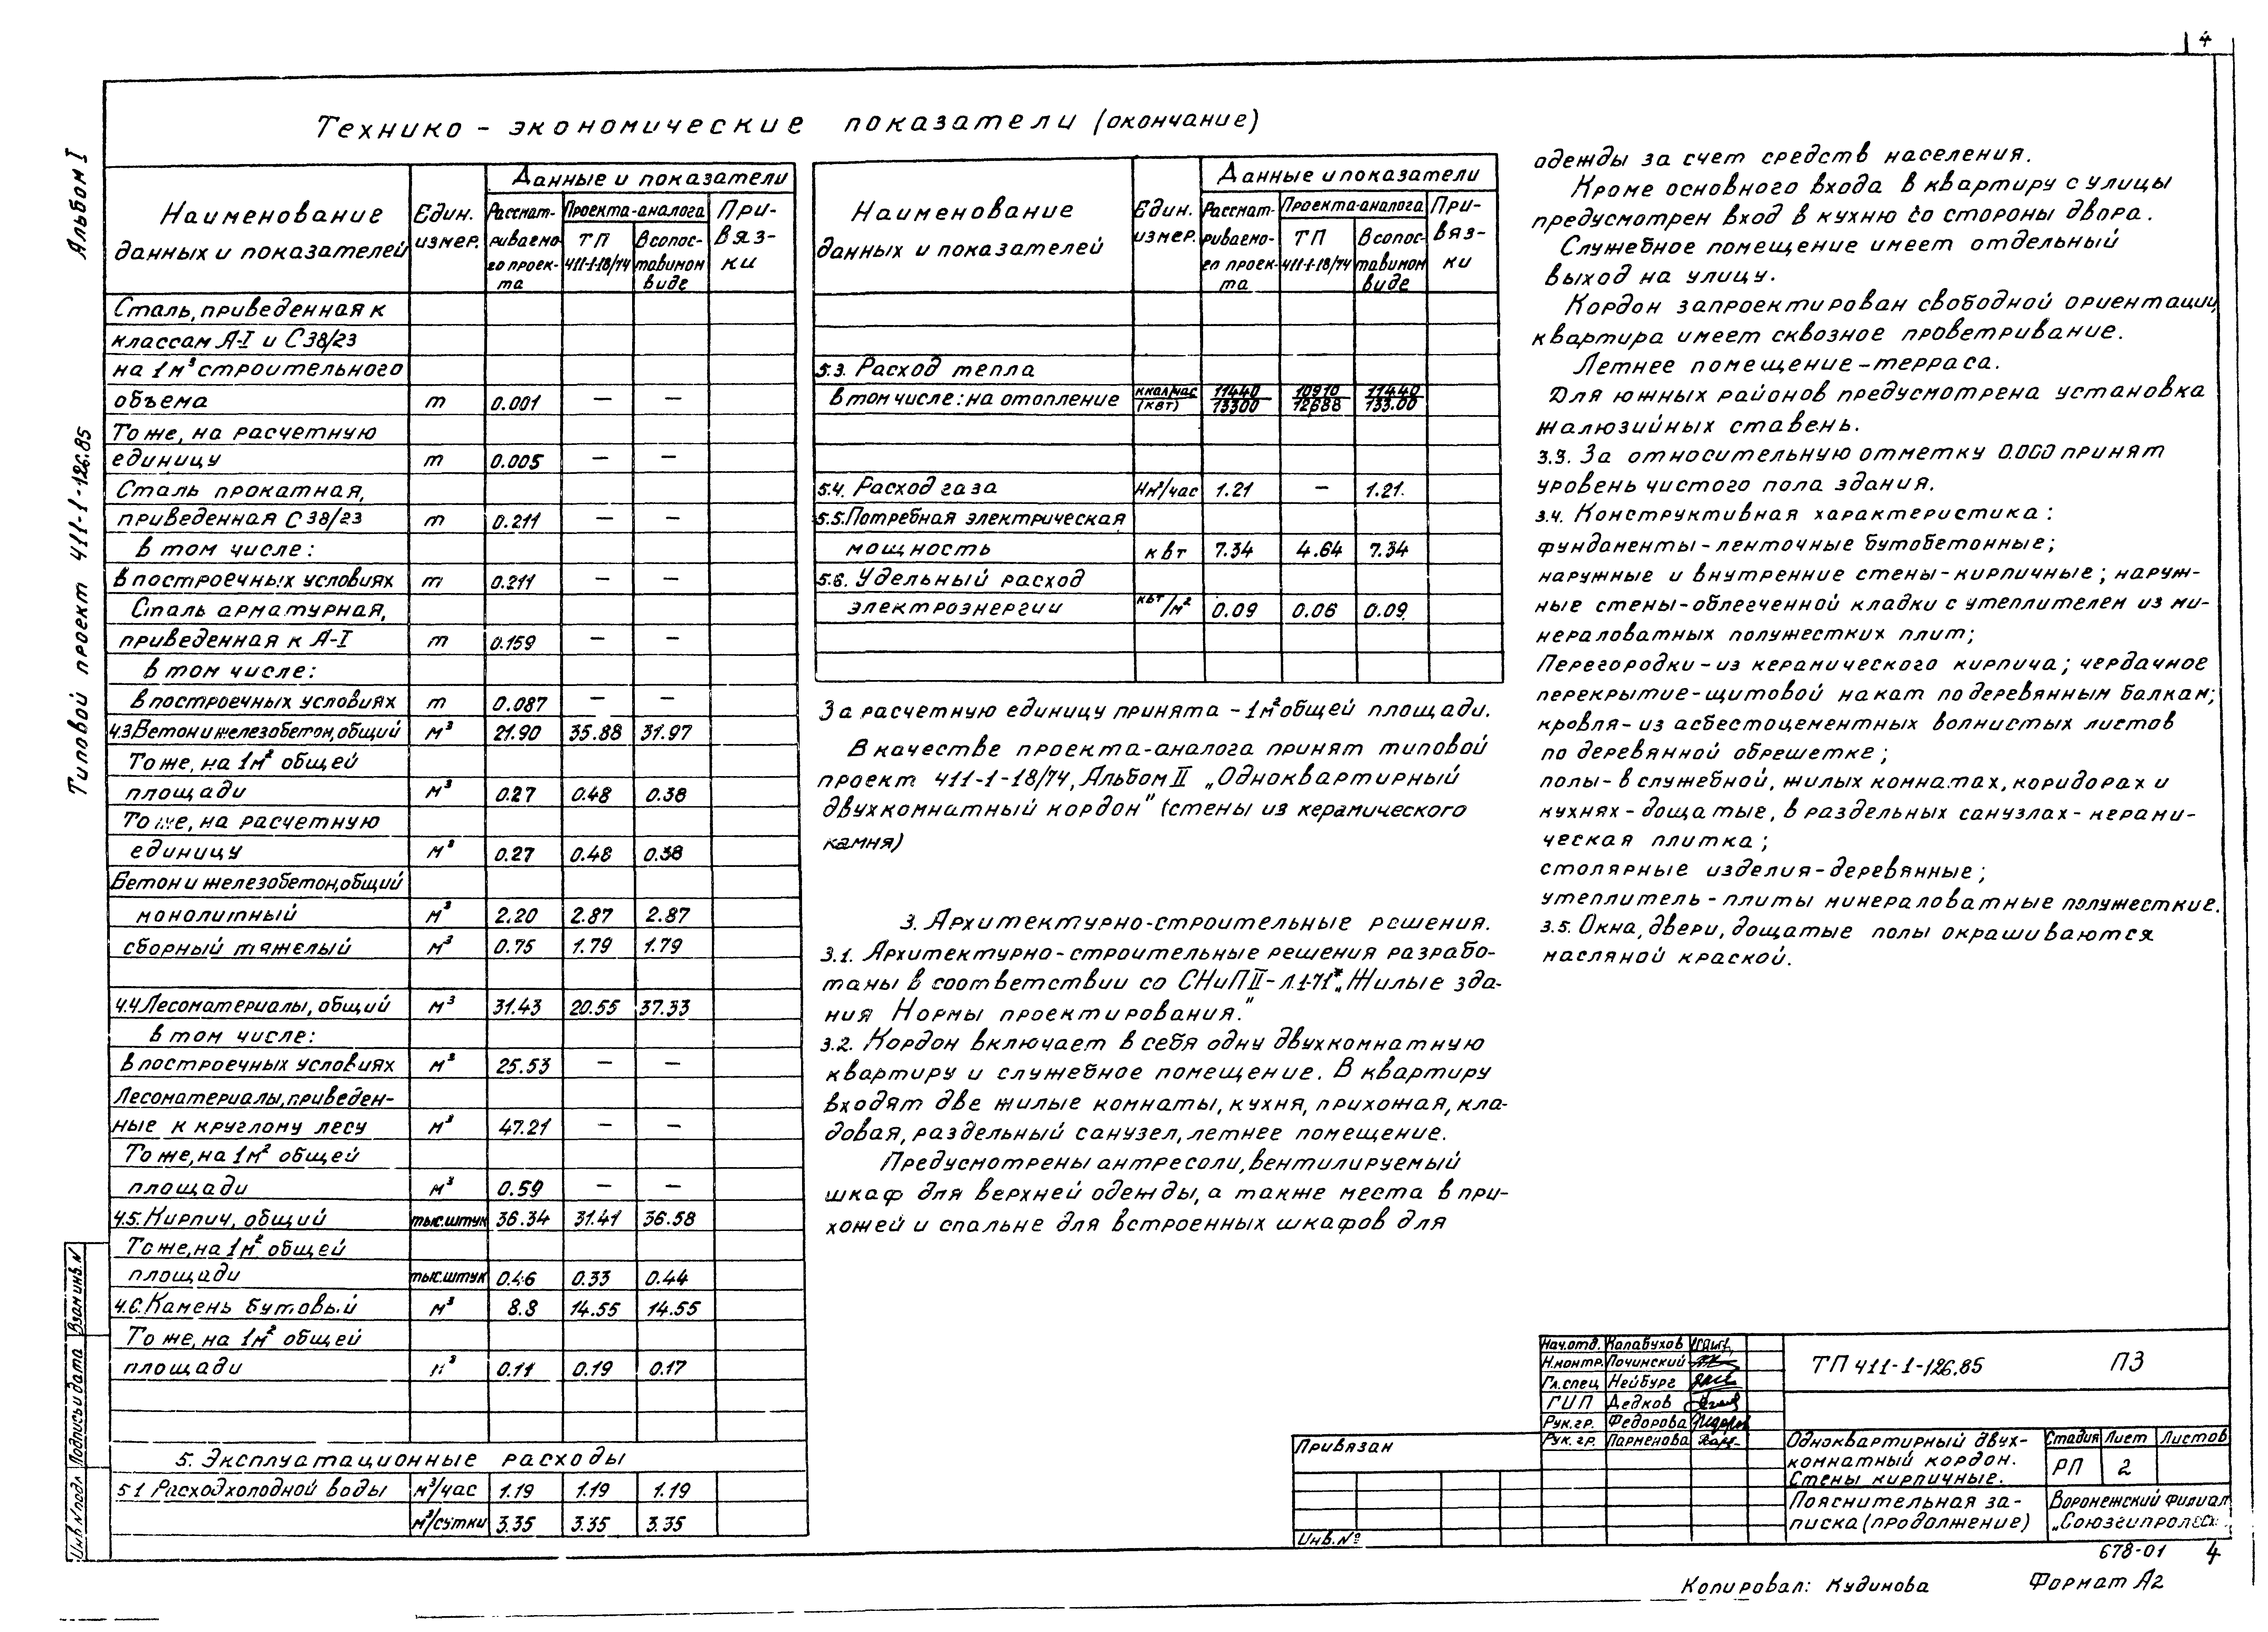 4
Альбом I
Типовой проект 411-1-126.85
Технико - экономические показатели (окончание)
Наименование данных и показателей | Един. измер. | Данные и показатели
Рассмат-риваемо-го проек-та | Проекта-аналога | При-вяз-ки
ТП 411-1-18/74 | В сопос-тавимом виде
Сталь, приведенная к
классам А-I и С38/23
на 1м³ строительного
объема т 0.001 — —
То же, на расчетную
единицу т 0.005 — —
Сталь прокатная,
приведенная С38/23 т 0.211 — —
в том числе:
в построечных условиях т 0.211 — —
Сталь арматурная,
приведенная к А-I т 0.159 — —
в том числе:
в построечных условиях т 0.087 — —
4.3 Бетон и железобетон, общий м³ 21.90 35.88 31.97
То же, на 1м² общей
площади м³ 0.27 0.48 0.38
То же, на расчетную
единицу м³ 0.27 0.48 0.38
Бетон и железобетон, общий
монолитный м³ 2.20 2.87 2.87
сборный тяжелый м³ 0.75 1.79 1.79
4.4 Лесоматериалы, общий м³ 31.43 20.55 37.33
в том числе:
в построечных условиях м³ 25.53 — —
Лесоматериалы, приведен-
ные к круглому лесу м³ 47.21 — —
То же, на 1м² общей
площади м³ 0.59 — —
4.5. Кирпич, общий тыс.штук 36.34 31.41 36.58
То же, на 1м² общей
площади тыс.штук 0.46 0.33 0.44
4.6. Камень бутовый м³ 8.8 14.55 14.55
То же, на 1м² общей
площади м³ 0.11 0.19 0.17
5. Эксплуатационные расходы
5.1 Расход холодной воды м³/час 1.19 1.19 1.19
м³/сутки 3.35 3.35 3.35
Наименование данных и показателей | Един. измер. | Данные и показатели
Рассмат-риваемо-го проек-та | Проекта-аналога | При-вяз-ки
ТП 411-1-18/74 | В сопос-тавимом виде
5.3. Расход тепла
в том числе: на отопление ккал/час 11440 10910 11440
(квт) 13300 12688 133.00
5.4. Расход газа Нм³/час 1.21 — 1.21.
5.5. Потребная электрическая
мощность квт 7.34 4.64 7.34
5.6. Удельный расход
электроэнергии квт/м² 0.09 0.06 0.09.
За расчетную единицу принята - 1м² общей площади.
В качестве проекта-аналога принят типовой
проект 411-1-18/74, Альбом II „Одноквартирный
двухкомнатный кордон" (стены из керамического
камня)
3. Архитектурно-строительные решения.
3.1. Архитектурно-строительные решения разрабо-
таны в соответствии со СНиП II-Л.1-71* „Жилые зда-
ния Нормы проектирования."
3.2. Кордон включает в себя одну двухкомнатную
квартиру и служебное помещение. В квартиру
входят две жилые комнаты, кухня, прихожая, кла-
довая, раздельный санузел, летнее помещение.
Предусмотрены антресоли, вентилируемый
шкаф для верхней одежды, а также места в при-
хожей и спальне для встроенных шкафов для
одежды за счет средств населения.
Кроме основного входа в квартиру с улицы
предусмотрен вход в кухню со стороны двора.
Служебное помещение имеет отдельный
выход на улицу.
Кордон запроектирован свободной ориентации,
квартира имеет сквозное проветривание.
Летнее помещение-терраса.
Для южных районов предусмотрена установка
жалюзийных ставень.
3.3. За относительную отметку 0.000 принят
уровень чистого пола здания.
3.4. Конструктивная характеристика:
фундаменты-ленточные бутобетонные;
наружные и внутренние стены-кирпичные; наруж-
ные стены-облегченной кладки с утеплителем из ми-
нераловатных полужестких плит;
Перегородки-из керамического кирпича; чердачное
перекрытие-щитовой накат по деревянным балкам;
кровля-из асбестоцементных волнистых листов
по деревянной обрешетке;
полы-в служебной, жилых комнатах, коридорах и
кухнях-дощатые, в раздельных санузлах-керами-
ческая плитка;
столярные изделия-деревянные;
утеплитель-плиты минераловатные полужесткие.
3.5. Окна, двери, дощатые полы окрашиваются
масляной краской.
Взам инв. N
Подпись и дата
Инв N подл
Нач.отд. Калабухов
Н.контр. Починский
Гл.спец Нейбург
ГИП Дедков
Рук.гр. Федорова
Рук.гр. Парменова
Привязан
Инв.№
ТП 411-1-126.85 ПЗ
Одноквартирный двух-
комнатный кордон.
Стены кирпичные.
Стадия Лист Листов
РП 2
Пояснительная за-
писка (продолжение)
Воронежский филиал
„Союзгипролесх
678-01 4
Копировал: Кудинова Формат А2